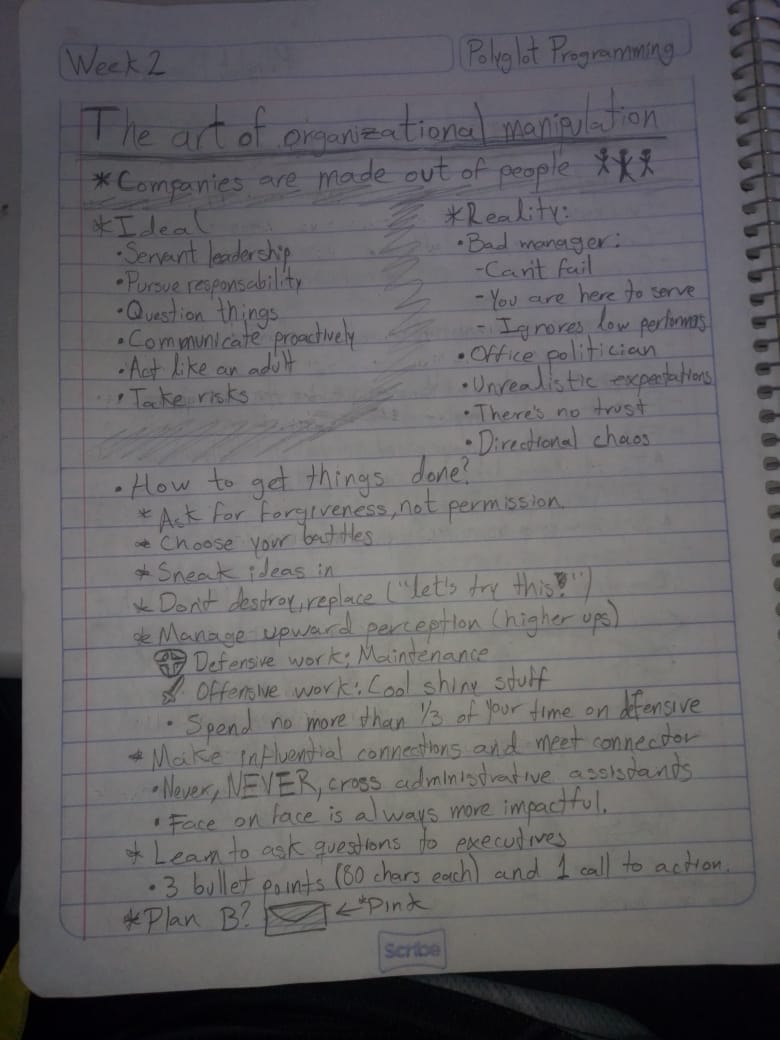 Week 2
Polyglot Programming
The art of organizational manipulation
*Companies are made out of people
*Ideal
•Servant leadership
•Pursue responsability
•Question things
•Communicate proactively
•Act like an adult
•Take risks
*Reality:
•Bad manager:
-Can't fail
-You are here to serve
-Ignores low performs
•Office politician
•Unrealistic expectations
•There's no trust
•Directional chaos
•How to get things done?
*Ask for forgiveness, not permission.
*Choose your battles
*Sneak ideas in
*Don't destroy, replace ("let's try this!")
*Manage upward perception (higher ups)
Defensive work: Maintenance
Offensive work: Cool shiny stuff
•Spend no more than 1/3 of your time on defensive
*Make influential connections and meet connector
•Never, NEVER, cross administrative assistands
•Face on face is always more impactful.
*Learn to ask questions to executives
•3 bullet points (80 chars each) and 1 call to action.
*Plan B? ←*Pink
Scribe